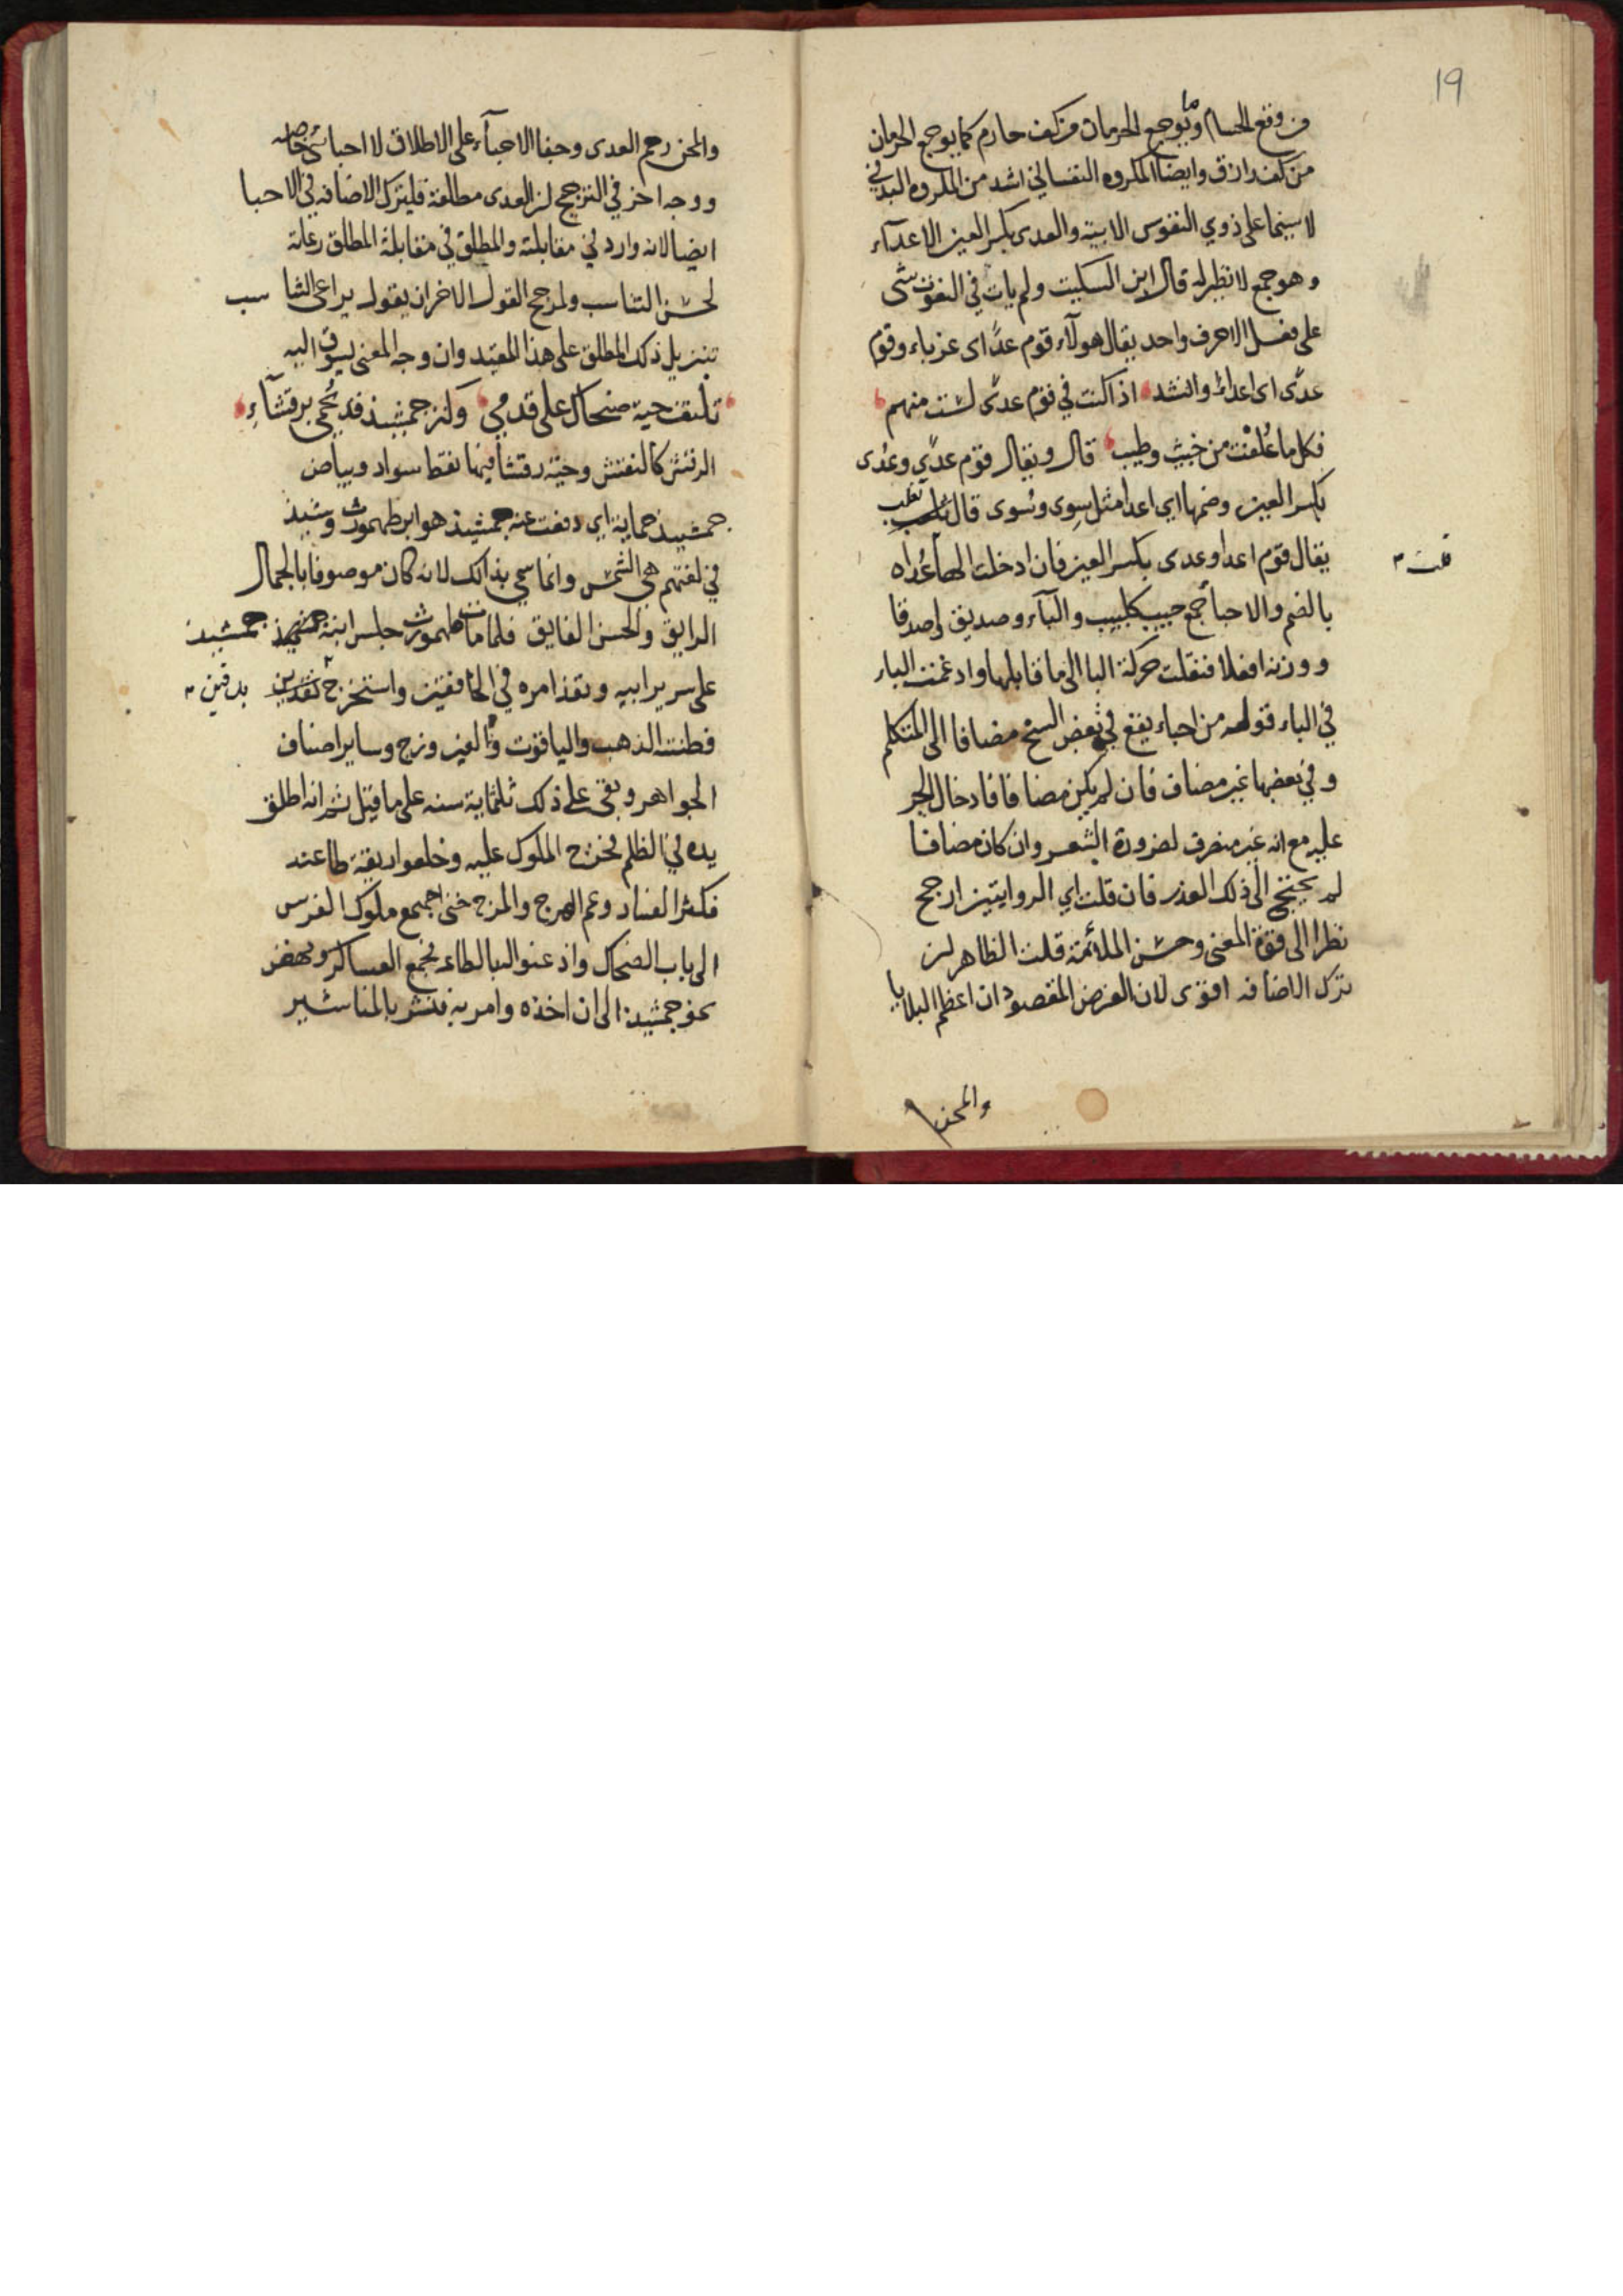 19
من وقع الحسام وما يوجع الحرمان من كف حارم كما يوجع الحرمان
من كف رازق وايضا المكروه النفساني اشد من المكروه البدني
لا سيما على ذوي النفوس الابيه والعدى بكسر العين الاعدآء
وهو جمع لا نظير له قال ابن السكيت ولم يات في النعوت شى
على فعل الا حرف واحد يقال هولآء قوم عدًى اى غرباء وقوم
عدًى اى اعداء وانشد اذا كنت في قوم عدًى لست منهم
فكل ما عُلفت من خبيث وطيب قال ويقال قوم عدًي وعُدى
بكسر العين وضمها اي اعدا مثل سِوى وسُوى قال ثعلب
يقال قوم اعدا وعدى بكسر العين فان ادخلت الهآ عُداه
قلت
بالضم والاحبا جمع حبيب كلبيب والبآء وصديق اصدقا
ووزنه افعلا فنقلت حركة البا الى ما قابلها وادغمت الباء
في الباء قوله من احباء يقع في بعض النسخ مضافا الى المتكلم
وفي بعضها غير مضاف فان لم يكن مضافا فادخال الجر
عليه مع انه غير منصرف لضرورة الشعر وان كان مضافا
لم يحتج الى ذلك العذر فان قلت اي الروايتين ارجح
نظرا الى قوة المعنى وحسن الملائمة قلت الظاهر ان
ترك الاضافه اقوى لان الغرض المقصود ان اعظم البلايا
والمحن
والمحن رحم العدى وجفا الاحبآء على الاطلاق لا احبا شي خاصه
ووجه اخر في الترجيح ان العدى مطلقة فليترك الاضافه في الاحبا
ايضا لانه وارد في مقابلته والمطلق في مقابلة المطلق رعاية
لحسن التناسب ولمرجح القول الاخر ان يقول يراعى التنا سب
تنزيل ذلك المطلق على هذا المقيد وان وجه المعنى يسوق اليه
تلتف حية ضحاك على قدمي وكنز جمشيذ قد يُحمى برقشآءِ
الرقش كالنقش وحية رقشا فيها نقط سواد وبياض
جمشيذ حماية اي دفعت عنه جمشيذ هو ابر طهمورث وشيذ
في لغتهم هي الشمس وانما سمي بذالك لانه كان موصوفا بالجمال
الرايق والحسن الفايق فلما مات طهمورث جلس ابنه جمشيذ
جمشيذ
على سرير ابيه ونفذ امره في الخافقين واستخرج
فطنته الذهب والياقوت والفيروزج وساير اصناف
الجواهر وبقى على ذلك ثلثماية سنه على ما قيل ثم انه اطلق
يده في الظلم فخرج الملوك عليه وخلعوا ربقة طاعته
فكثر الفساد وعم الهرج والمرج حتى اجمع ملوك الفرس
الى باب الضحاك واذعنوا له بالطاعه فجمع العساكر ونهض
نحو جمشيذ الى ان اخذه وامر به فنشر بالمناشير